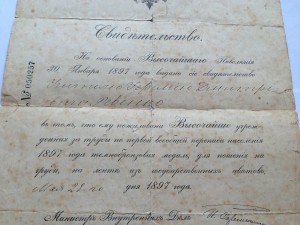 Свидѣтельство.
На основаніи Высочайшаго Повелѣнія
30 Января 1897 года выдано это свидѣтельство
№ 050257
въ томъ, что ему пожалована Высочайше учреж-
денная за труды по первой всеобщей переписи населенія
1897 года темнобронзовая медаль, для ношенія на
груди, на лентѣ изъ государственныхъ цвѣтовъ.
Мая 21 дня 1897 года.
Министръ Внутреннихъ Дѣлъ